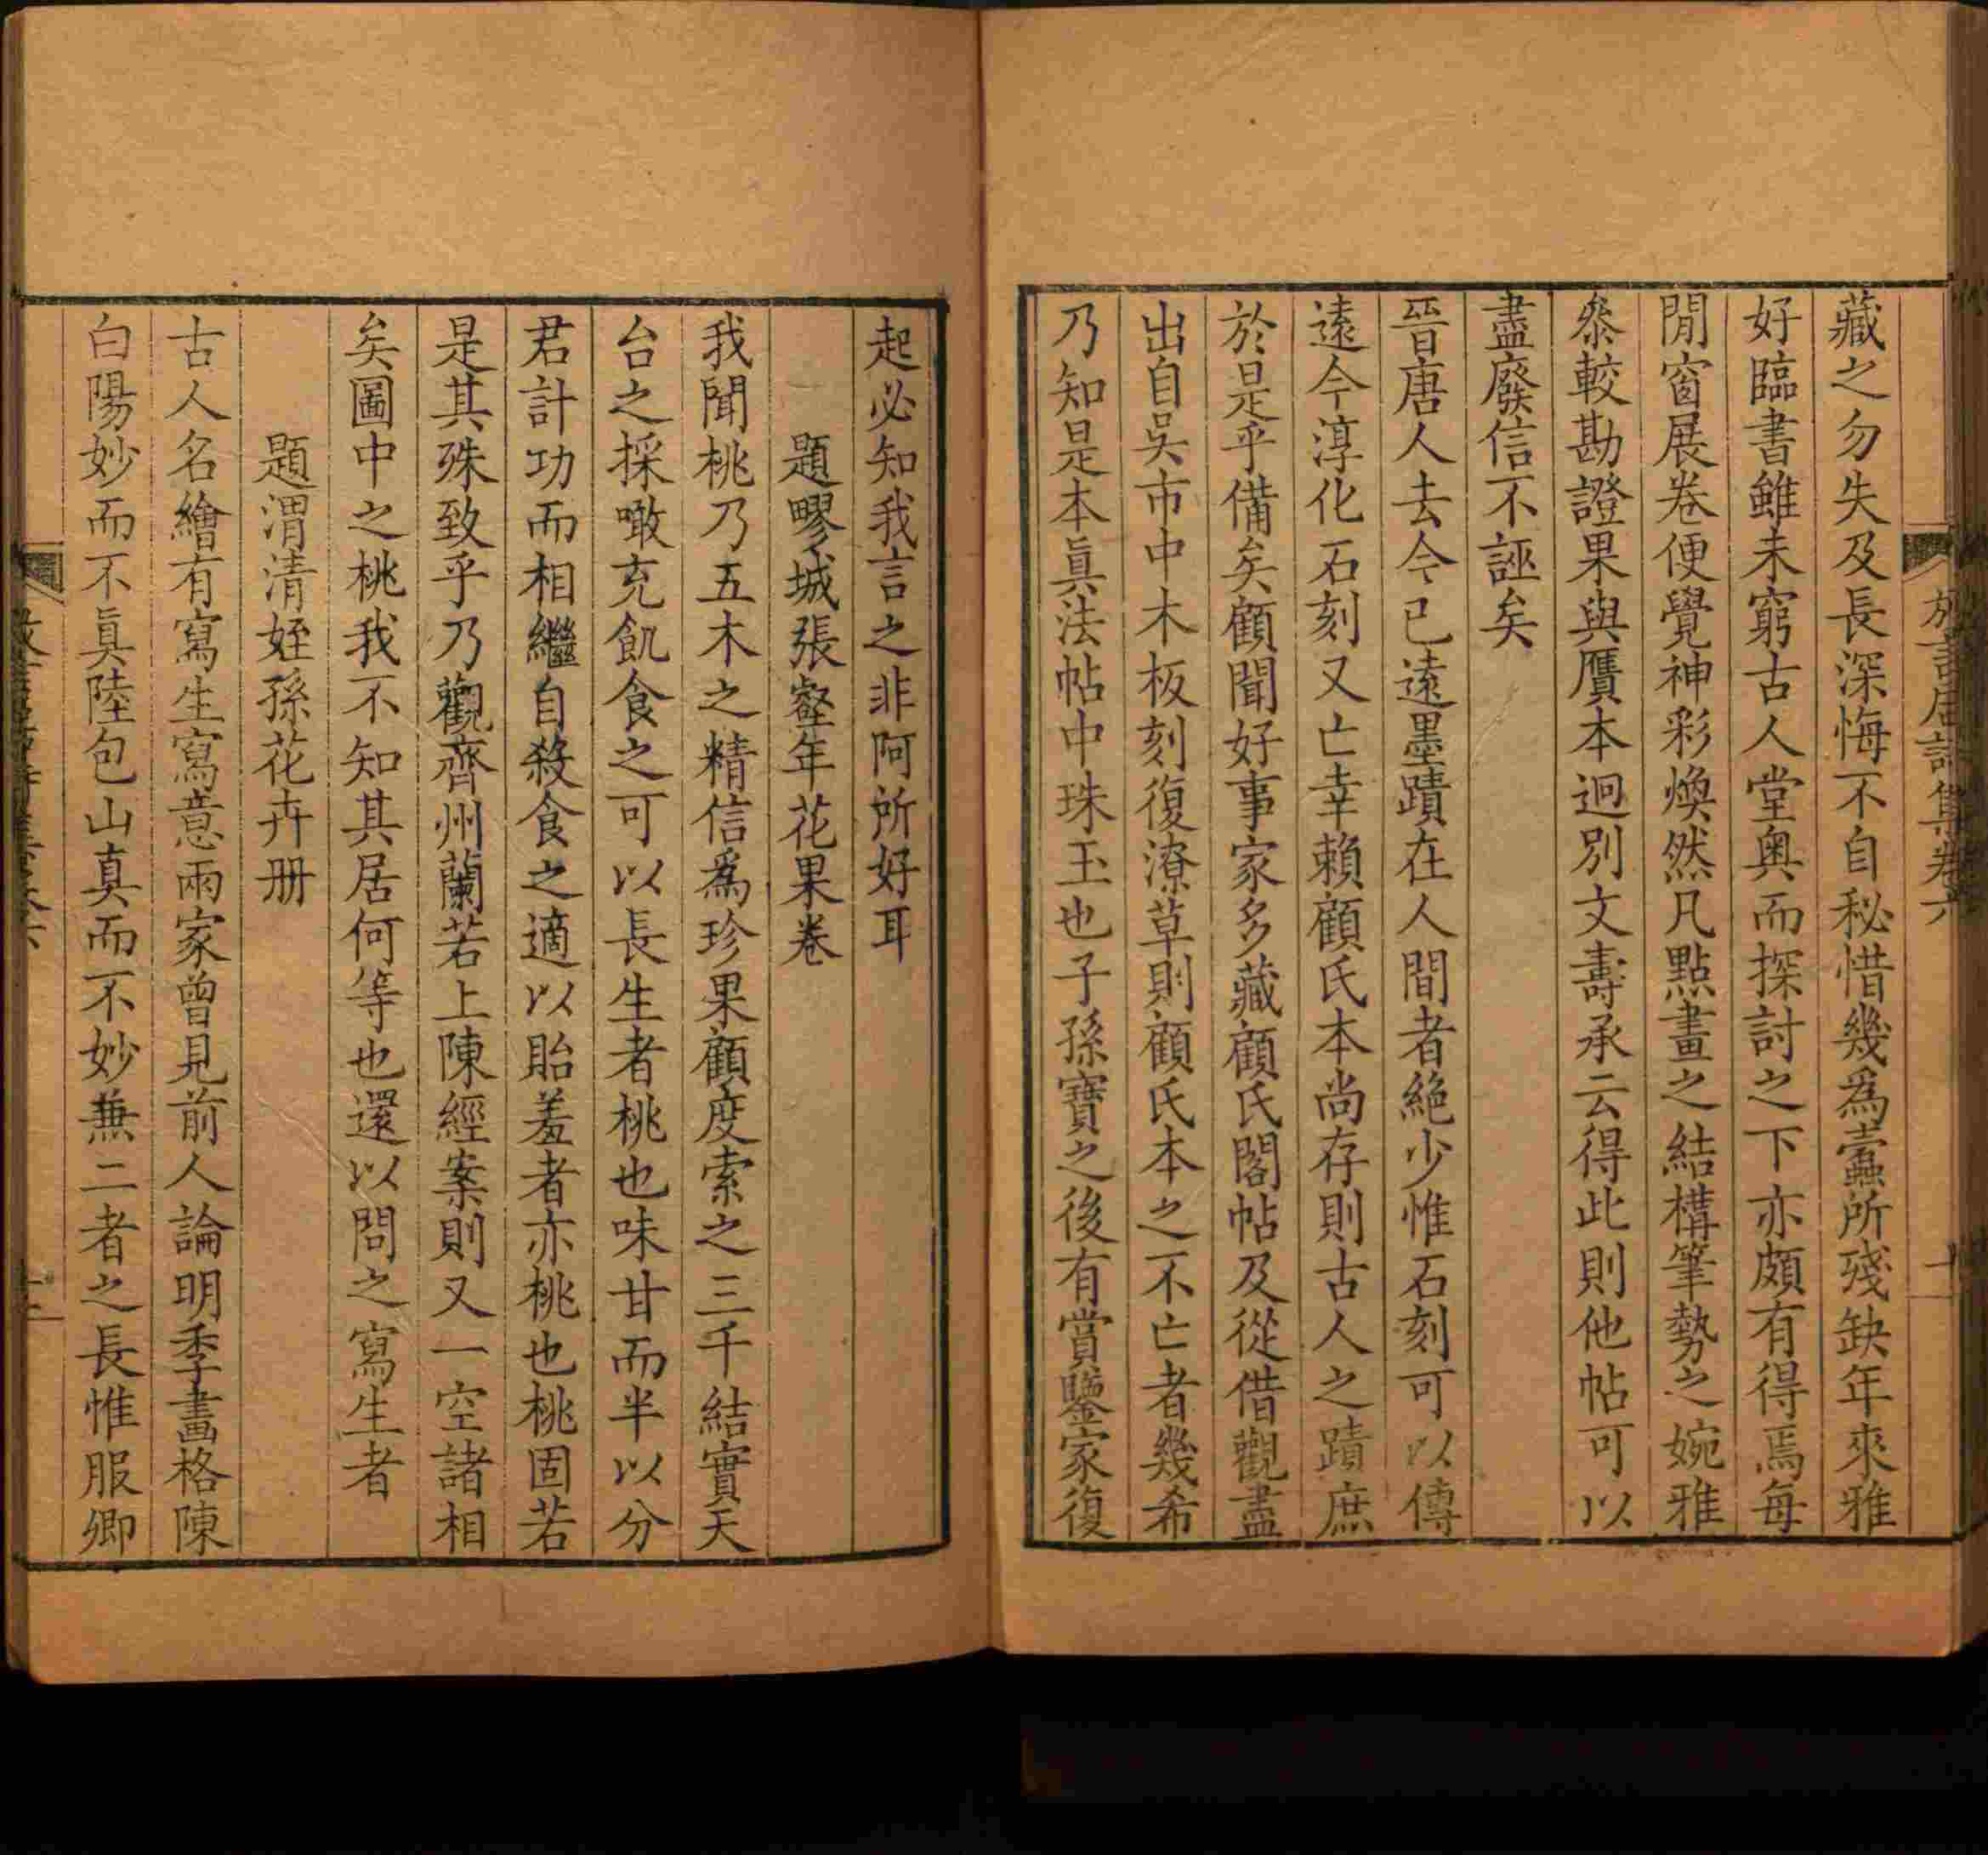 藏之勿失及長深悔不自秘惜幾為蠹所殘缺年來雅
好臨書雖未窮古人堂奥而探討之下亦頗有得焉每
閒窗展卷便覺神彩煥然凡點畫之結構筆勢之婉雅
叅較勘證果與贋本迥別文壽承云得此則他帖可以
盡廢信不誣矣
晉唐人去今已遠墨蹟在人間者絶少惟石刻可以傳
遠今淳化石刻又亡幸賴顧氏本尚存則古人之蹟庶
於是乎備矣顧聞好事家多藏顧氏閣帖及從借觀盡
出自吳市中木板刻復潦草則顧氏本之不亡者幾希
乃知是本眞法帖中珠玉也子孫寶之後有賞鑒家復
起必知我言之非阿所好耳
題疁城張壑年花果卷
我聞桃乃五木之精信為珍果顧度索之三千結實天
台之採噉充飢食之可以長生者桃也味甘而半以分
君計功而相繼自殺食之適以貽羞者亦桃也桃固若
是其殊致乎乃觀齊州蘭若上陳經案則又一空諸相
矣圖中之桃我不知其居何等也還以問之寫生者
題渭清姪孫花卉册
古人名繪有寫生寫意兩家曾見前人論明季畫格陳
白陽妙而不眞陸包山真而不妙兼二者之長惟服卿